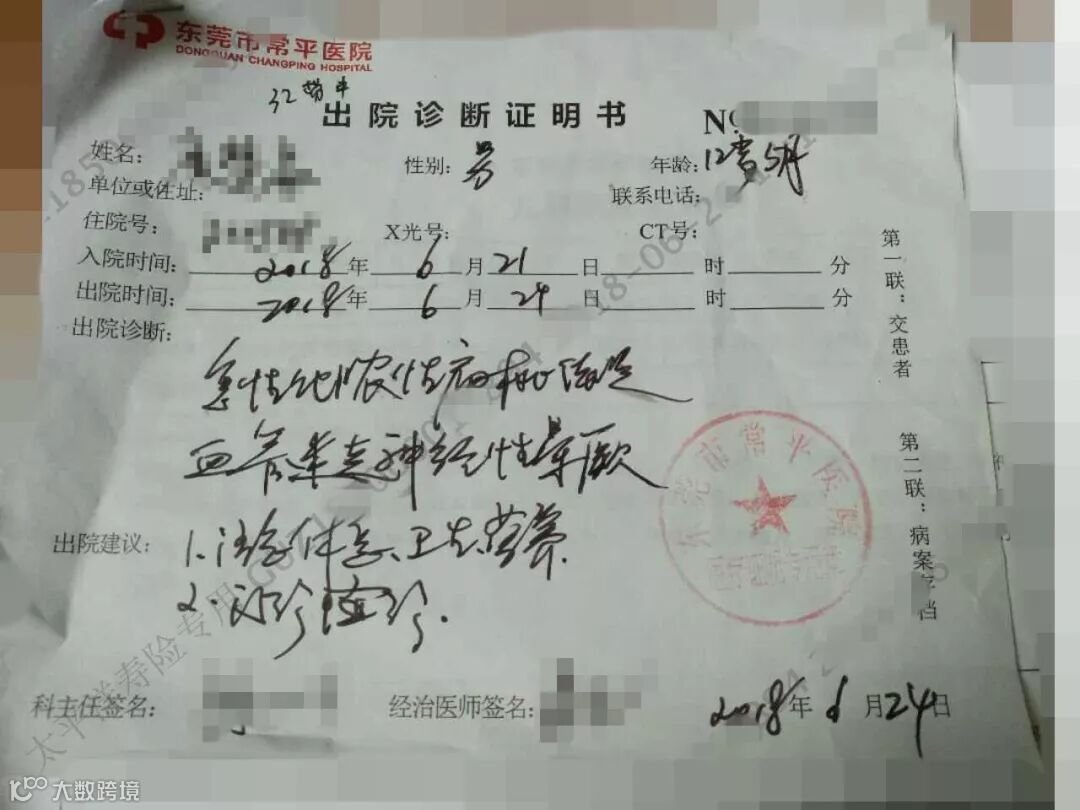 东莞市常平医院
DONGGUAN CHANGPING HOSPITAL
出院诊断证明书
No
姓名:
性别: 男
年龄: 12岁5月
单位或住址:
联系电话:
住院号:
X光号:
CT号:
入院时间: 2018年6月21日 时 分
出院时间: 2018年6月24日 时 分
出院诊断:
急性化脓性扁桃体炎
血管迷走神经性晕厥
出院建议: 1.注意休息、卫生、营养.
2.门诊随诊.
科主任签名:
经治医师签名:
2018年6月24日
第一联:交患者
第二联:病案存档
东莞市常平医院
太平洋寿险专用
大数跨境